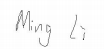 Ming Li